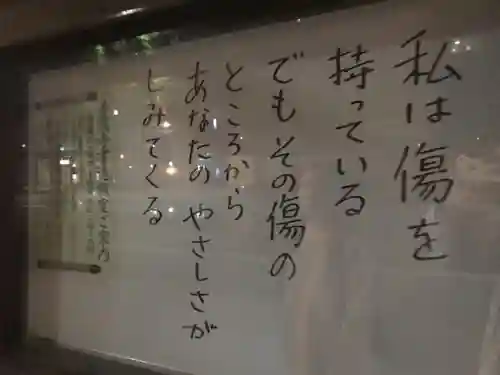 私は傷を
持っている
でもその傷の
ところから
あなたのやさしさが
しみてくる